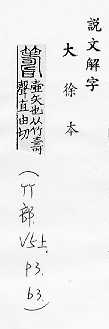 說文解字
大徐本
籌
壺矢也从竹壽
聲直由切
(竹部.
V5上.
P3.
b3.)